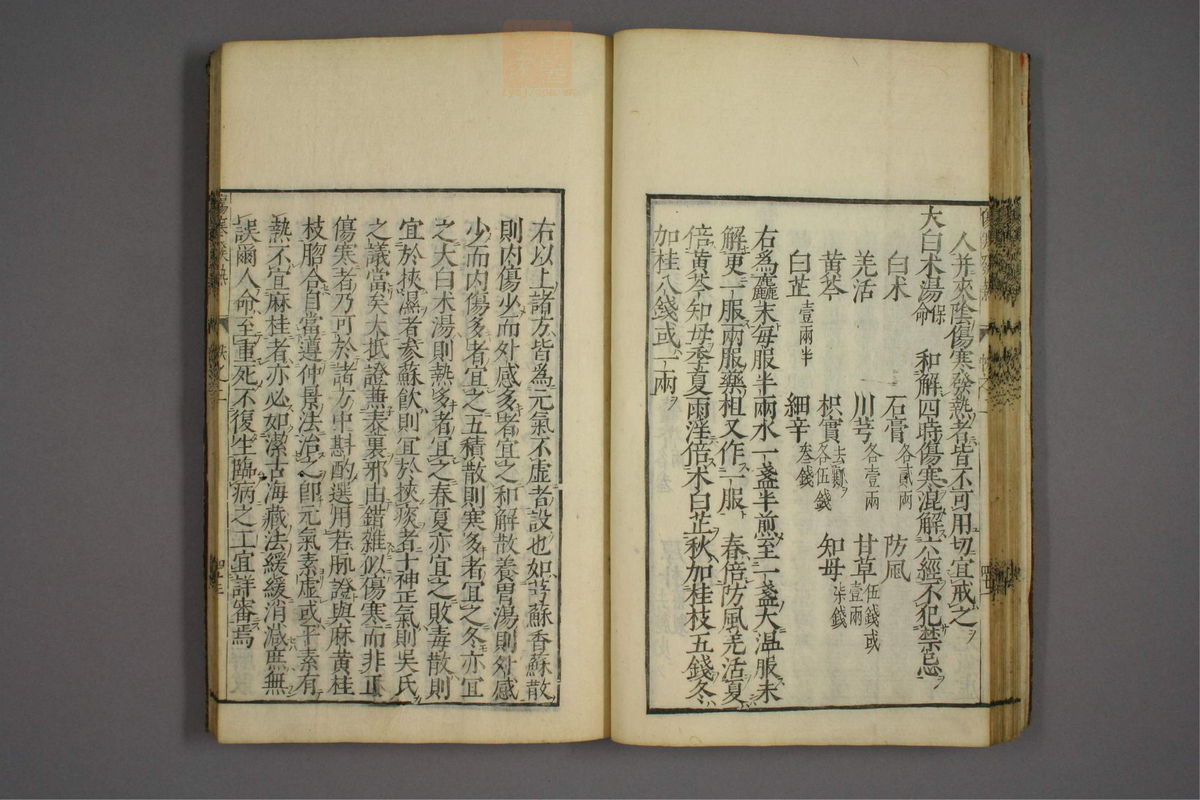 人并來陰傷寒發熱者皆不可用切宜戒之
大白朮湯保命 和解四時傷寒混解六經不犯禁忌
白朮 石膏各貳兩 防風
羌活 川芎各壹兩 甘草伍錢或壹兩
黃芩 枳實去瓤各伍錢 知母柒錢
白芷壹兩半 細辛叁錢
右爲麤末每服半兩水一盞半煎至一盞大温服未
解更一服兩服藥柤又作一服 春倍防風羌活夏
倍黃芩知母季夏雨淫倍朮白芷秋加桂枝五錢冬
加桂八錢或一兩
右以上諸方皆爲元氣不虛者設也如芎蘇香蘇散
則內傷少而外感多者宜之和解散養胃湯則外感
少而內傷多者宜之五積散則寒多者宜之冬亦宜
之大白朮湯則熱多者宜之春夏亦宜之敗毒散則
宜於挾濕者參蘇飲則宜於挾痰者十神正氣則吳氏
之議當矣大抵證兼表裏邪由錯雜似傷寒而非正
傷寒者乃可於諸方中斟酌選用若脈證與麻黃桂
枝脗合自當遵仲景法治之卽元氣素虛或平素有
熱不宜麻桂者亦必如潔古海藏法緩緩消減庶無
誤爾人命至重死不復生臨病之工宜詳審焉